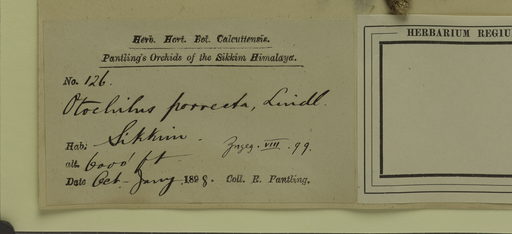 Herb. Hort. Bot. Calcuttensis.
Pantling's Orchids of the Sikkim Himalaya.
No. 126.
Otochilus porrecta, Lindl.
Hab: Sikkim.
alt. 6000' ft
Date Oct-Jany 1898. Coll. R. Pantling.
VIII. 99.
HERBARIUM REGIU